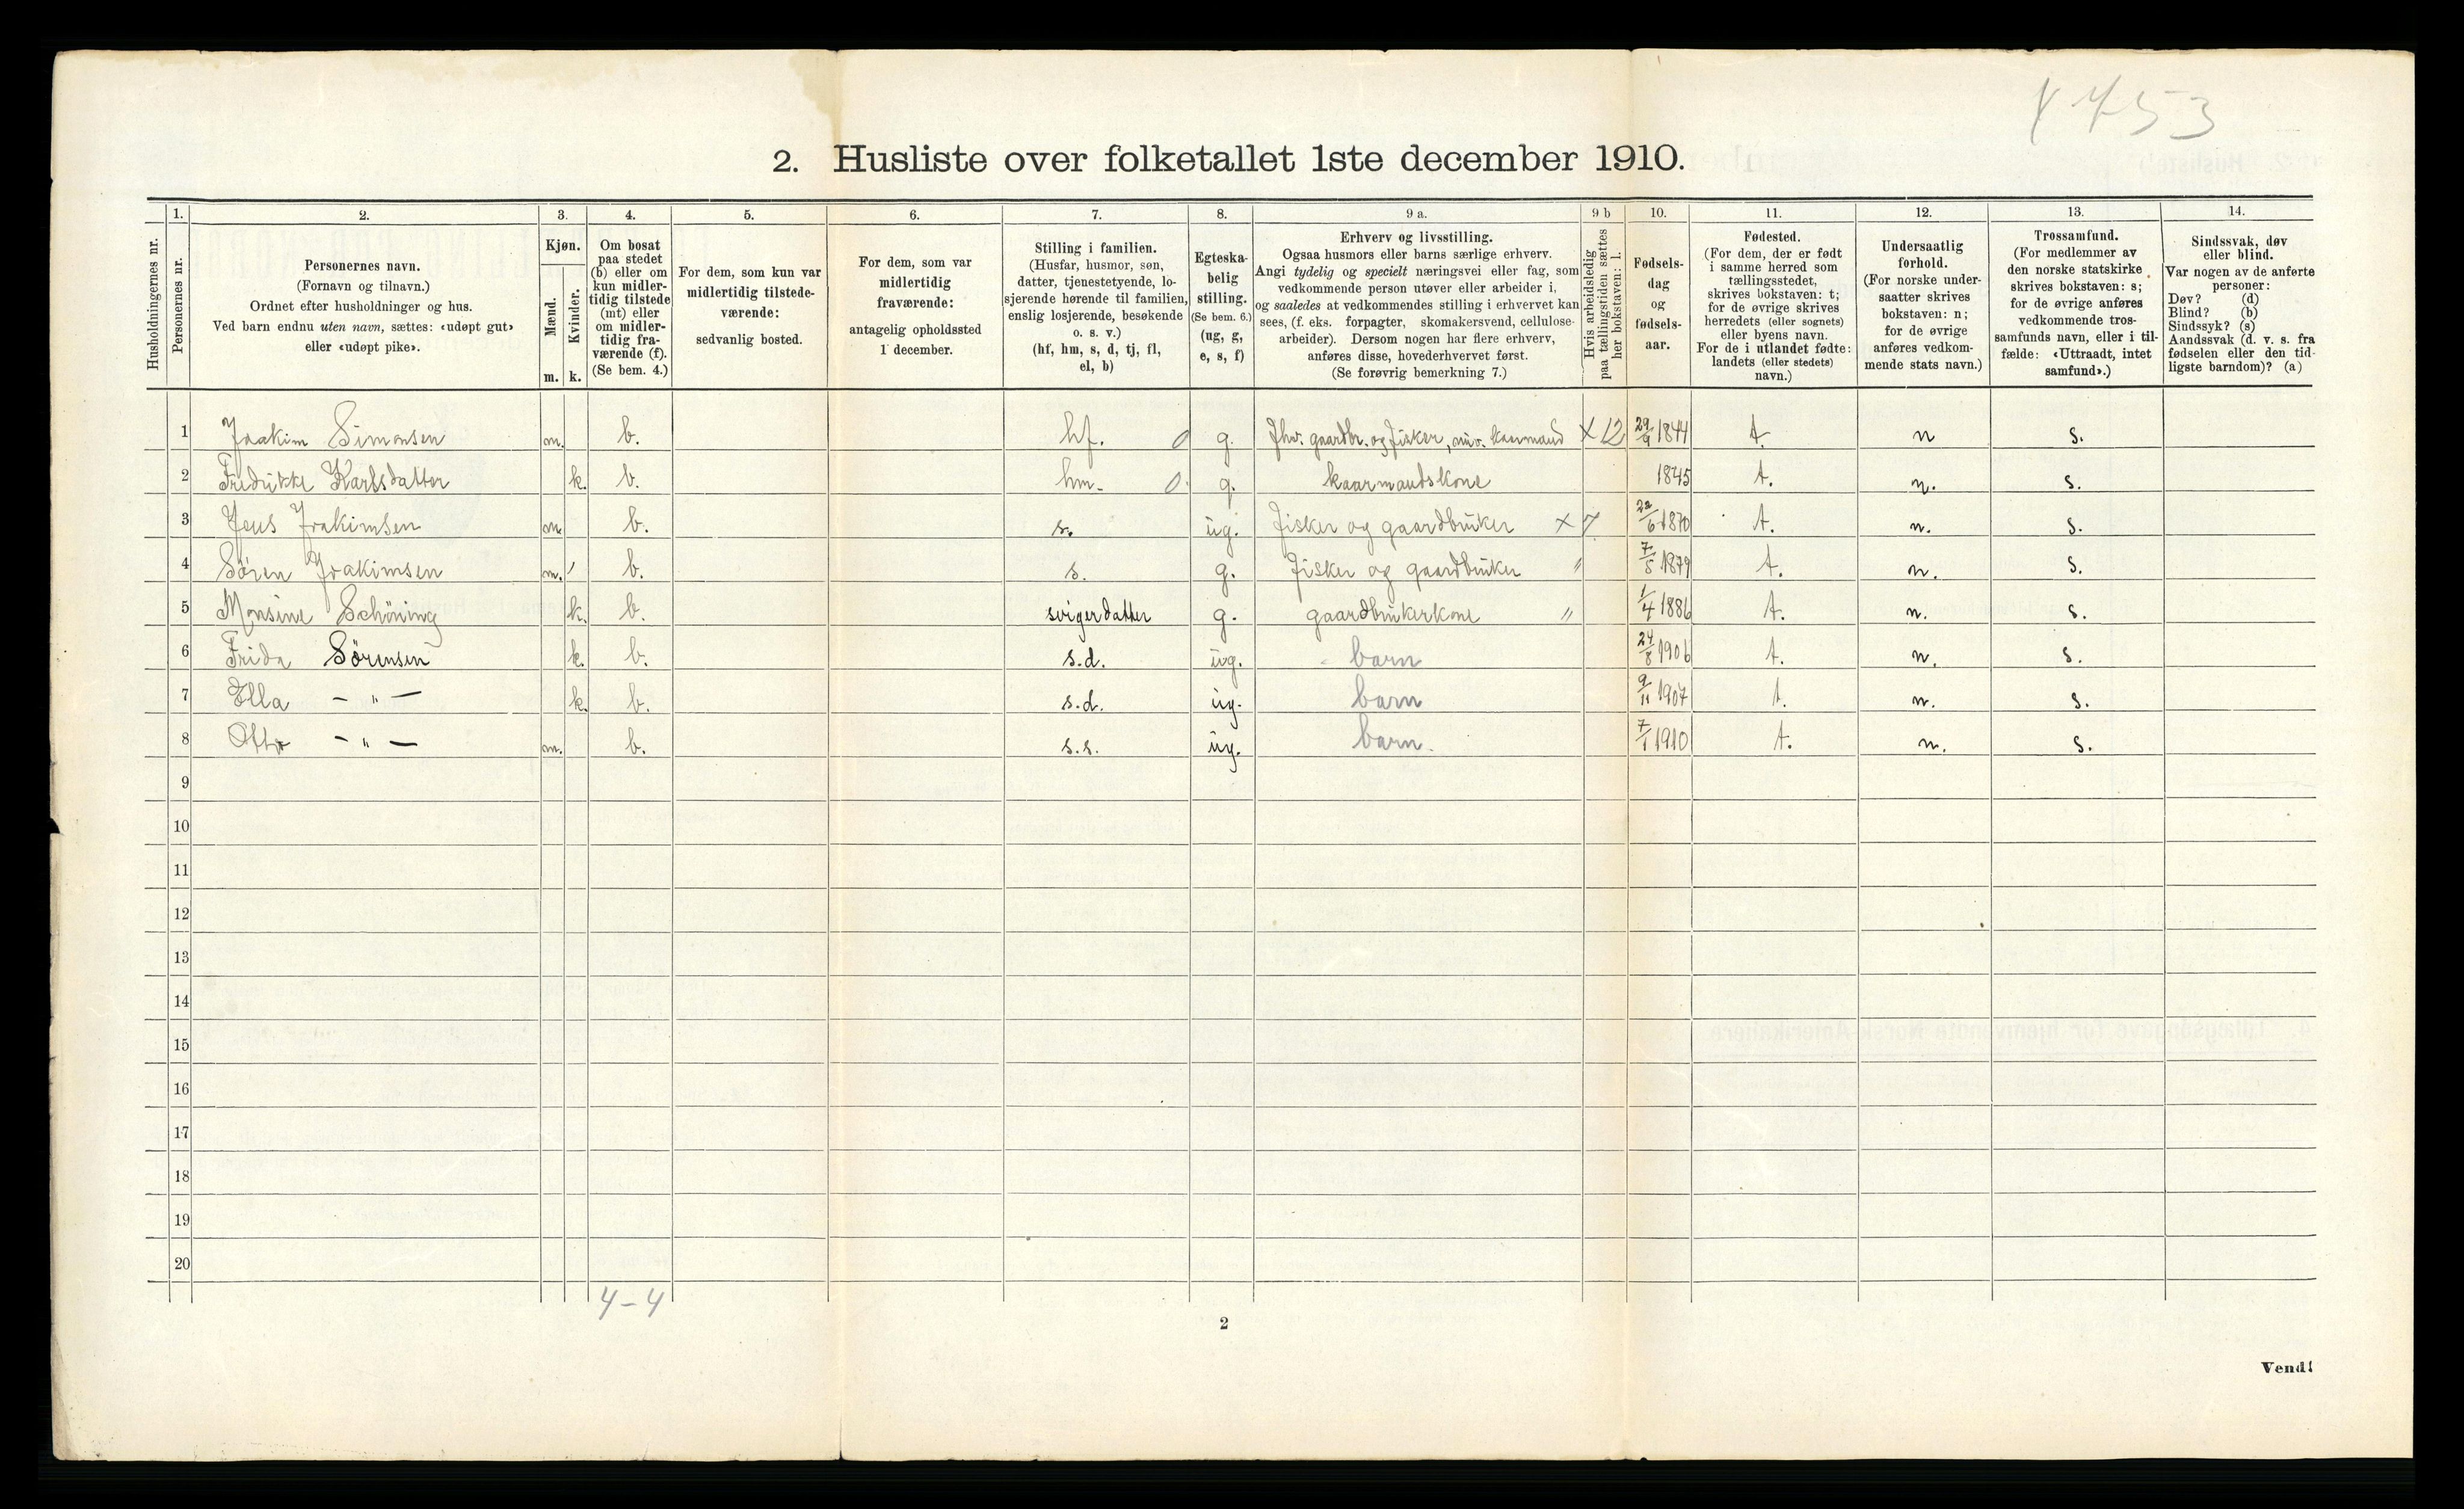 1753
2. Husliste over folketallet 1ste december 1910.
Husholdningernes nr.
1. Personernes nr.
2. Personernes navn.
(Fornavn og tilnavn.)
Ordnet efter husholdninger og hus.
Ved barn endnu uten navn, sættes: «udøpt gut»
eller «udøpt pike».
3. Kjøn.
Mænd. m.
Kvinder. k.
4. Om bosat
paa stedet
(b) eller om
kun midler-
tidig tilstede
(mt) eller
om midler-
tidig fra-
værende (f).
(Se bem. 4.)
5. For dem, som kun var
midlertidig tilstede-
værende:
sedvanlig bosted.
6. For dem, som var
midlertidig
fraværende:
antagelig opholdssted
1 december.
7. Stilling i familien.
(Husfar, husmor, søn,
datter, tjenestetyende, lo-
sjerende hørende til familien,
enslig losjerende, besøkende
o. s. v.)
(hf, hm, s, d, tj, fl,
el, b)
8. Egteska-
belig
stilling.
(Se bem. 6.)
(ug, g,
e, s, f)
9 a. Erhverv og livsstilling.
Ogsaa husmors eller barns særlige erhverv.
Angi tydelig og specielt næringsvei eller fag, som
vedkommende person utøver eller arbeider i,
og saaledes at vedkommendes stilling i erhvervet kan
sees, (f. eks. forpagter, skomakersvend, cellulose-
arbeider). Dersom nogen har flere erhverv,
anføres disse, hovederhvervet først.
(Se forøvrig bemerkning 7.)
9 b Hvis arbeidsledig
paa tællingstiden sættes
her bokstaven: l.
10. Fødsels-
dag
og
fødsels-
aar.
11. Fødested.
(For dem, der er født
i samme herred som
tællingsstedet,
skrives bokstaven: t;
for de øvrige skrives
herredets (eller sognets)
eller byens navn.
For de i utlandet fødte:
landets (eller stedets)
navn.)
12. Undersaatlig
forhold.
(For norske under-
saatter skrives
bokstaven: n;
for de øvrige
anføres vedkom-
mende stats navn.)
13. Trossamfund.
(For medlemmer av
den norske statskirke
skrives bokstaven: s;
for de øvrige anføres
vedkommende tros-
samfunds navn, eller i til-
fælde: «Uttraadt, intet
samfund».)
14. Sindssvak, døv
eller blind.
Var nogen av de anførte
personer:
Døv? (d)
Blind? (b)
Sindssyk? (s)
Aandssvak (d. v. s. fra
fødselen eller den tid-
ligste barndom)? (a)
1 Joakim Simonsen m. b. hf. 0 g. Fhv. gaardbr. og fisker, nuv. kaarmand X 12 29/9 1844 t. n s.
2 Fredrikke Karlsdatter k. b. hm. 0 g. kaarmandskone 1845 t. n. s.
3 Jens Joakimsen m b. s. ug. Fisker og gaardbruker X 7 22/6 1870 t. n. s.
4 Sören Joakimsen m. b. s. g. Fisker og gaardbruker " 7/5 1879 t. n. s.
5 Monsine Schöning k. b. svigerdatter g. gaardbrukerkone " 1/4 1886 t. n. s.
6 Frida Sörensen k. b. s.d. ug. barn 24/8 1906 t. n. s.
7 Ella - " - k. b. s.d. ug. barn 9/11 1907 t. n. s.
8 Otto - " - m. b. s.s. ug. barn. 7/1 1910 t. n. s.
9
10
11
12
13
14
15
16
17
18
19
20
4-4
2
Vend!